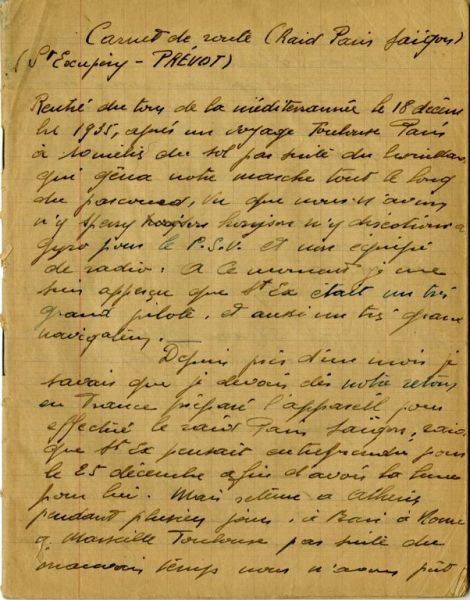 Carnet de route (Raid Paris Saïgon)
(St Exupéry - PRÉVOT)
Rentré du tour de la méditerrannée le 18 décem
bre 1935, après un voyage Toulouse Paris
à 10 mètres du sol par suite du
qui géna notre marche tout le long
du parcours, vu que nous n'avions
n'y horizon n'y directional
gyro pour le P.S.V. et non équipé
de radio. A ce moment je me
suis apperçu que St Ex était un très
grand pilote, et aussi un très grand
navigateur.
Depuis près d'un mois je
savais que je devais dès notre retour
en France préparé l'appareil pour
effectué le raid Paris Saïgon, raid
que St Ex pensait entreprendre pour
le 25 décembre afin d'avoir la lune
pour lui. Mais retenu à Athènes
pendant plusieurs jours, à Bari à Rome
à Marseille Toulouse par suite du
mauvais temps nous n'avons pût